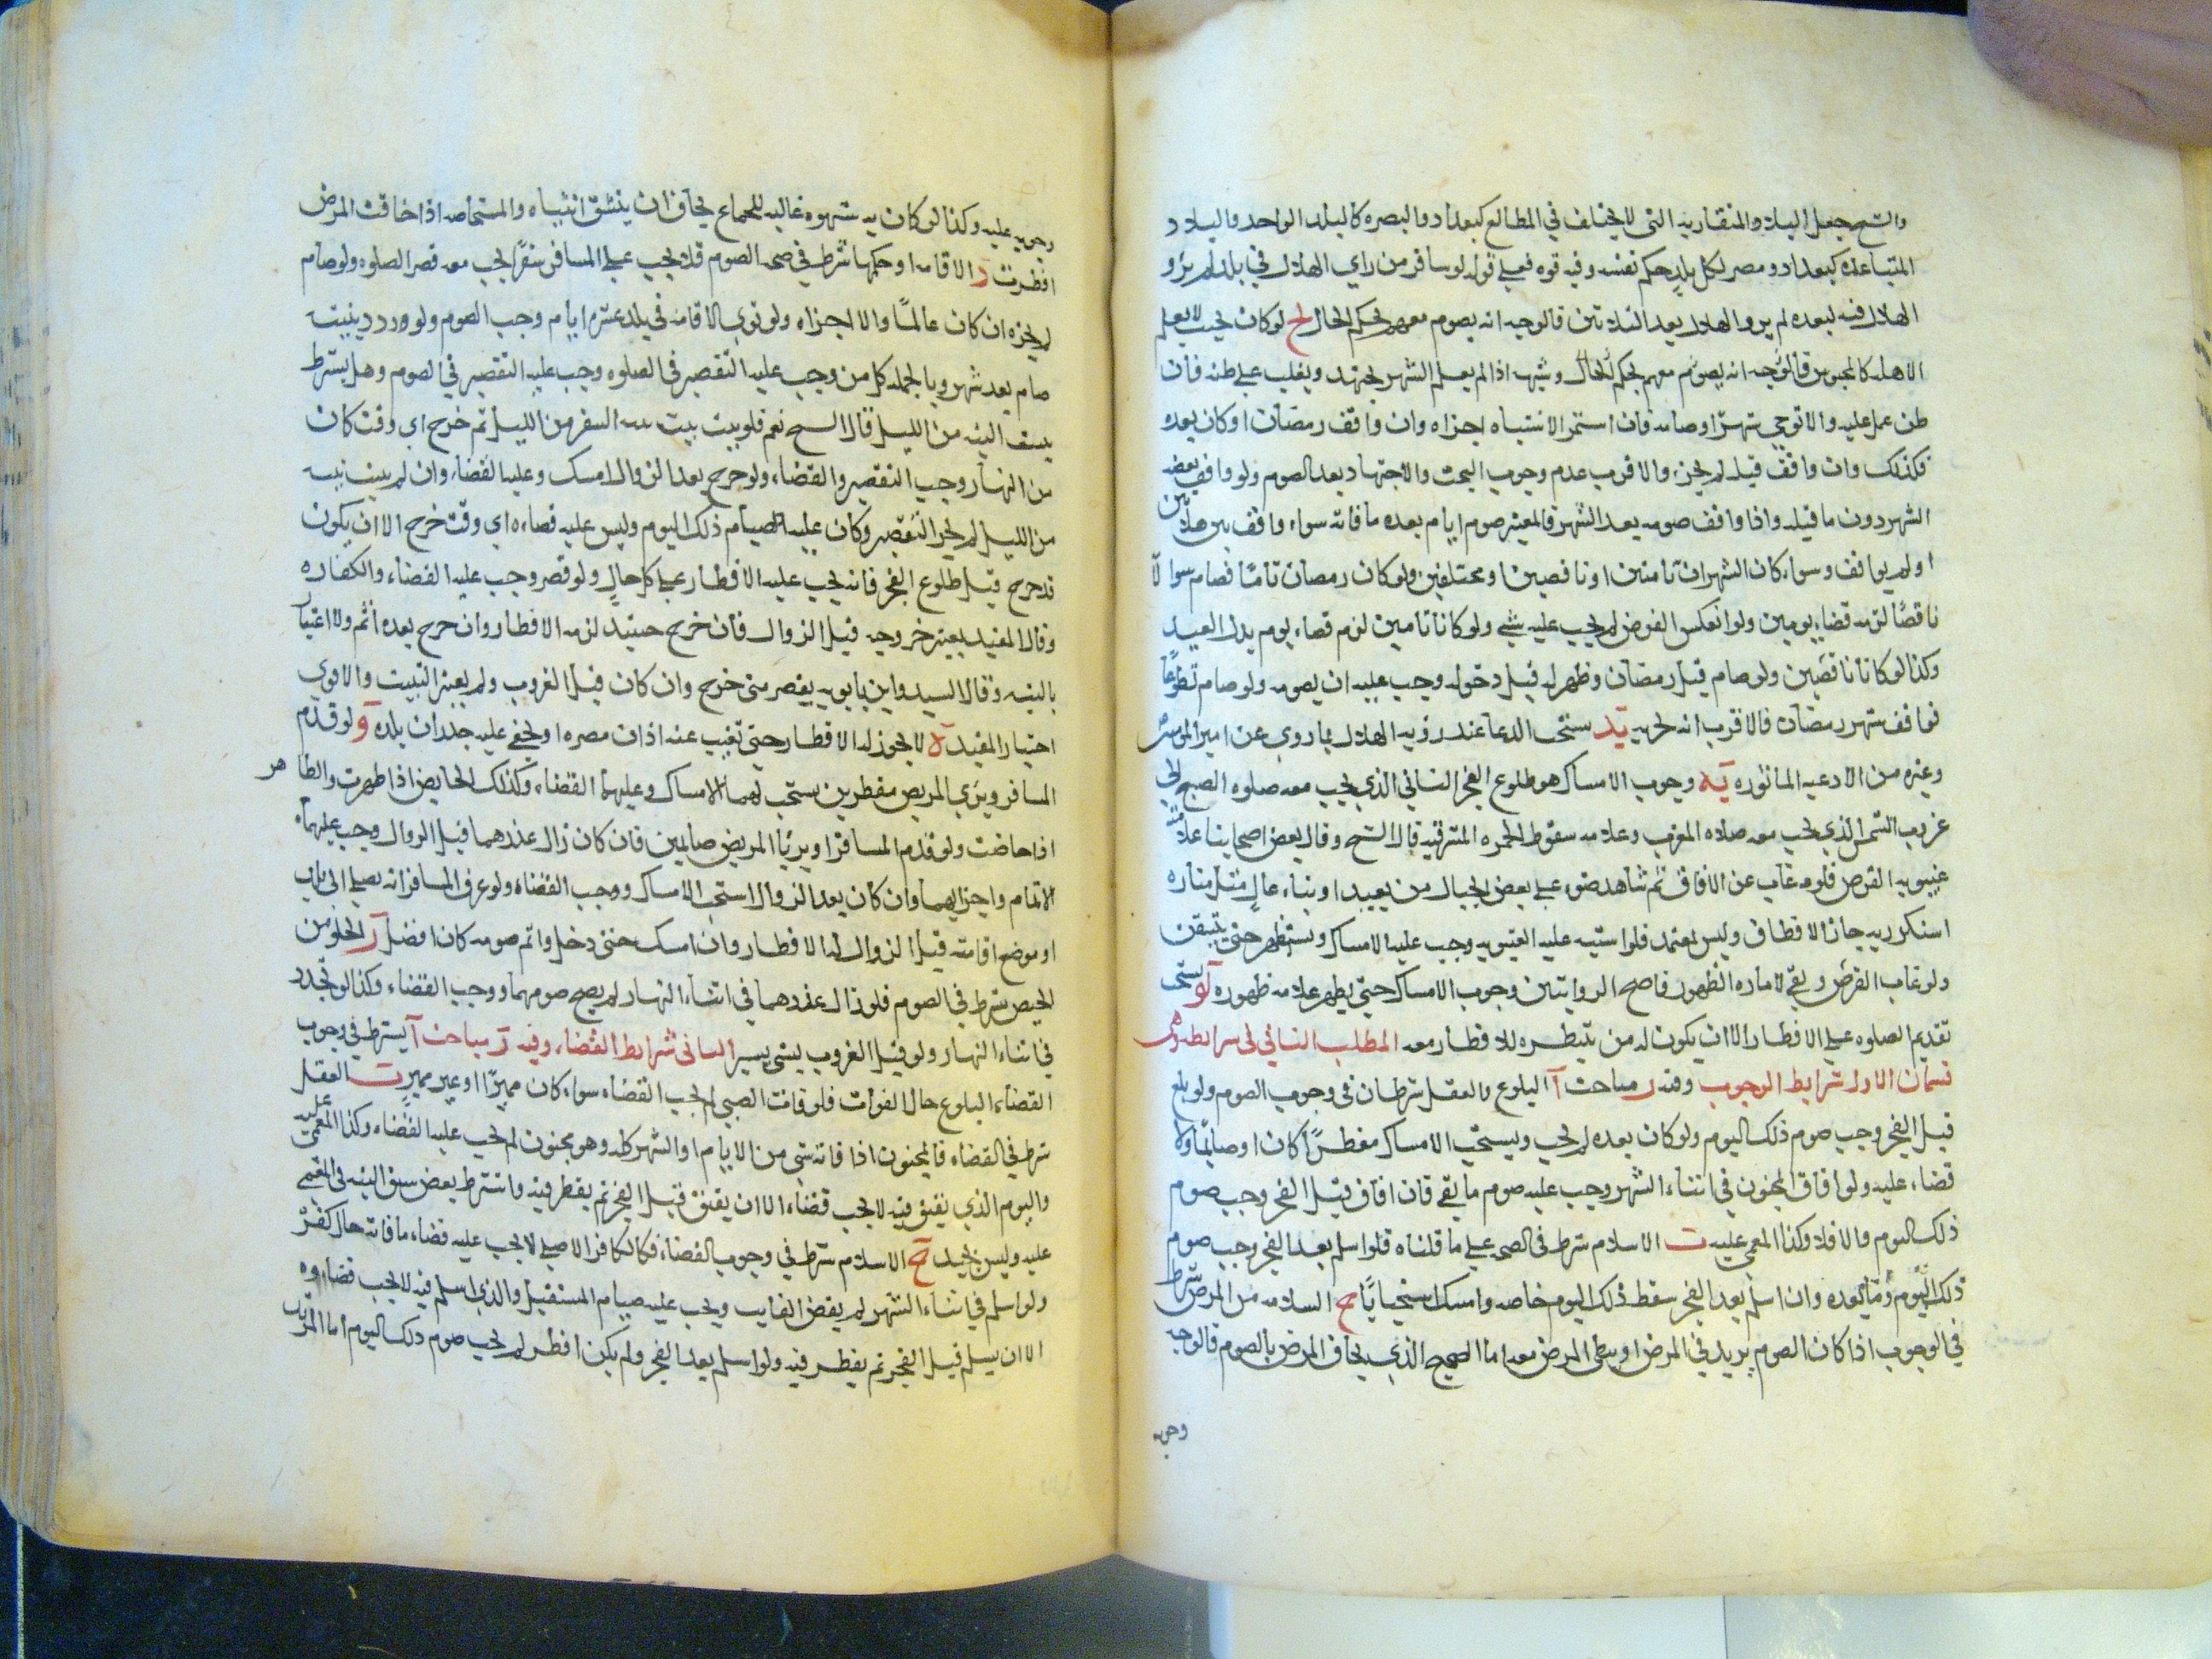 والشيخ جعل البلاد المتقاربه التي لا يختلف في المطالع كبغداد والبصره كالبلد الواحد والبلاد
المتباعده كبغداد ومصر لكل بلد حكم نفسه وفيه قوه فعلي قوله لو سافر من راي الهلال في بلد لم يرو
الهلال فيه لبعده لم يرو الهلال بعد الثلاثين فالوجه انه يصوم معهم لحكم الحال يج لو كان بحيث لا يعلم
الاهله كالمحبوس فالوجه انه يصوم معهم بحكم الحال وشبهه اذا لم يعلم الشهر يجتهد ويغلب علي ظنه فان
ظن عمل عليه والا توخي شهرا وصامه فان استمر الاشتباه اجزاه وان وافق رمضان او كان بعده
فكذلك وان وافق قبله لم يجزه والاقرب عدم وجوب البحث والاجتهاد بعد الصوم ولو وافق بعضه
الشهر دون ما قبله واذا وافق صومه بعد الشهر فالمعتبر صوم ايام بعده ما فاته سواء وافق بين هلالين
او لم يوافق وسواء كان الشهران تامين او ناقصين او مختلفين ولو كان رمضان تاما فصام شوالا
ناقصا لزمه قضاء يومين ولو انعكس الفرض لم يجب عليه شي ولو كانا تامين لزم قضاء يوم بدل العيد
وكذا لو كانا ناقصين ولو صام قبل رمضان وظهر له قبل دخوله وجب عليه ان يصومه ولو صام تطوعا
فوافق شهر رمضان فالاقرب انه يجزيه يد يستحب الدعا عند رؤيه الهلال بما روي عن امير المومنين
وغيره من الادعيه الماثوره يه وجوب الامساك هو طلوع الفجر الثاني الذي يجب معه صلوه الصبح الي
غروب الشمس الذي يجب معه صلاه المغرب وعلامته سقوط الحمره المشرقيه قال الشيخ وقال بعض اصحابنا علامته
غيبوبه القرص فلو غاب عن الافاق ثم شاهد ضوء علي بعض الجبال من بعيد او بناء عال مثل مناره
اسكندريه جاز الافطار وليس بمعتمد فلو اشتبه عليه الغيبوبه وجب عليه الامساك ويستظهر حتي يتيقن
ولو غاب القرص وبقي لاماره الظهور فاصح الروايتين وجوب الامساك حتي يظهر علامه ظهوره يو يستحب
تقديم الصلوه علي الافطار الا ان يكون له من ينتظره للافطار معه المطلب الثاني في شرايطه وهي
قسمان الاول شرايط الوجوب وفيه ز مباحث آ البلوغ والعقل شرطان في وجوب الصوم ولو بلغ
قبل الفجر وجب صوم ذلك اليوم ولو كان بعده لم يجب ويستحب الامساك مفطرا كان او صايما ولا
قضاء عليه ولو افاق المجنون في اثناء الشهر وجب عليه صوم ما بقي فان افاق قبل الفجر وجب صوم
ذلك اليوم والا فلا وكذا المغمي عليه ب الاسلام شرط في الصحه علي ما قلناه فلو اسلم بعد الفجر وجب صوم
ذلك اليوم وما بعده وان اسلم بعد الفجر سقط ذلك اليوم خاصه وامسك استحبابا ج السلامه من المرض شرط
في الوجوب اذا كان الصوم يزيد في المرض او يبطي المرض معه اما الصحيح الذي يخاف المرض بالصوم فالوجه
وجوبه
وجوبه عليه وكذا لو كان به شهوه غالبه للجماع يخاف ان ينشق انثياه والمستحاضه اذا خافت المرض
افطرت د الاقامه او حكمها شرط في صحه الصوم فلا يجب علي المسافر سفرا يجب معه قصر الصلوه ولو صام
لم يجزه ان كان عالما والا اجزاه ولو نوي الاقامه في بلد عشره ايام وجب الصوم ولو ردد بنيته
صام بعد شهر وبالجمله كل من وجب عليه التقصير في الصلوه وجب عليه التقصير في الصوم وهل يشترط
تبييت النيه من الليل قال الشيخ نعم فلو بيت نيه السفر من الليل ثم خرج اي وقت كان
من النهار وجب التقصير والقضاء ولو خرج بعد الزوال امسك وعليه القضاء وان لم يبيت نيته
من الليل لم يجز التقصير وكان عليه صيام ذلك اليوم وليس عليه قضاءه اي وقت خرج الا ان يكون
قد خرج قبل طلوع الفجر فانه يجب عليه الافطار علي كل حال ولو قصر وجب عليه القضاء والكفاره
وقال المفيد يعتبر خروجه قبل الزوال فان خرج حينئذ لزمه الافطار وان خرج بعده اتم ولا اعتبار
بالنيه وقال السيد وابن بابويه يقصر متي خرج وان كان قبل الغروب ولم يعتبر التبييت والاقوي
اختيار المفيد ه لا يجوز له الافطار حتي تغيب عنه اذان مصره او يخفي عليه جدران بلده و لو قدم
المسافر ويبري المريض مفطرين يستحب لهما الامساك وعليهما القضاء وكذلك الحايض اذا طهرت والطاهر
اذا حاضت ولو قدم المسافر او بري المريض صايمين فان كان زال عذرهما قبل الزوال وجب عليهما
الاتمام واجزا لهما وان كان بعد الزوال استحب الامساك ووجب القضاء ولو عرف المسافر انه يصل الي بلده
او موضع اقامته قبل الزوال له الافطار وان امسك حتي دخل واتم صومه كان افضل ز الخلو من
الحيض شرط في الصوم فلو زال عذرهما في اثناء النهار لم يصح صومهما ووجب القضاء وكذا لو تجدد
في اثناء النهار ولو قبل الغروب بشي يسير الثاني شرايط القضاء وفيه ز مباحث آ يشترط في وجوب
القضاء البلوغ حال الفوات فلو فات الصبي لم يجب القضاء سواء كان مميزا او غير مميز ب العقل
شرط في القضاء فالمجنون اذا فاته شي من الايام او الشهر كله وهو مجنون لم يجب عليه القضاء وكذا المغمي عليه
واليوم الذي يفيق فيه لا يجب قضاءه الا ان يفيق قبل الفجر ثم يفطر فيه واشترط بعض سبق النيه في المغمي
عليه وليس بجيد ج الاسلام شرط في وجوب القضاء فكالكافر الاصلي لا يجب عليه قضاء ما فاته حال كفره
ولو اسلم في اثناء الشهر لم يقض الفايت ويجب عليه صيام المستقبل والذي اسلم فيه لا يجب قضاوه
الا ان يسلم قبل الفجر ثم يفطر فيه ولو اسلم بعد الفجر ولم يكن افطر لم يجب صوم ذلك اليوم اما المرتد